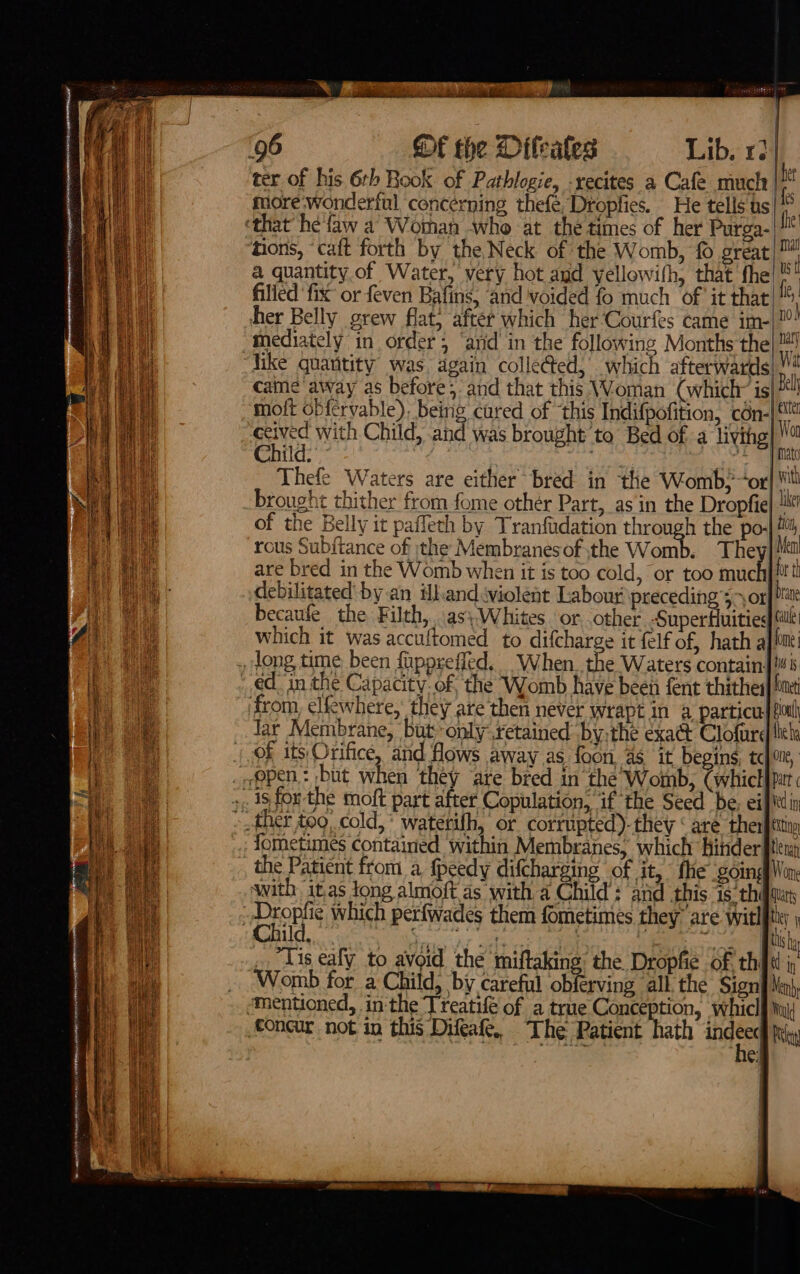 96 Of the Diſeaſes Lib. 1.
ter of his 6th Book of Pathlogie, recites a Caſe much
more wonderful concerning theſe Dropſies. He tells us
that he ſaw a Woman who at the times of her Purga-
tions, caſt forth by the Neck of the Womb, ſo great
a quantity of Water, very hot and yellowiſh, that ſhe
filled ſix or ſeven Baſins, and voided ſo much of it that
her Belly grew flat; after which her Courſes came im-
mediately in order; and in the following Months the
like quantity was again collected, which afterwards
came away as before; and that this Woman (which is
moſt obſervable), being cured of this Indiſpoſition, con-
ceived with Child, and was brought to Bed of a living
Child.
Theſe Waters are either bred in the Womb, or
brought thither from ſome other Part, as in the Dropſie
of the Belly it paſſeth by Tranſudation through the po-
rous Subſtance of the Membranes of the Womb. They
are bred in the Womb when it is too cold, or too much
debilitated by an ill and violent Labour preceding; or
becauſe the Filth, as Whites or other Superfluities
which it was accuſtomed to diſcharge it ſelf of, hath a
long time been ſuppreſſed. When the Waters contain-
ed in the Capacity of the Womb have been ſent thither
from elſewhere, they are then never wrapt in a particu-
lar Membrane, but only retained by the exact Cloſure
of its Orifice, and flows away as ſoon as it begins to
open: but when they are bred in the Womb, (which
is for the moſt part after Copulation, if the Seed be ei-
ther too cold, wateriſh, or corrupted) they are then
ſometimes contained within Membranes, which hinder
the Patient from a ſpeedy diſcharging of it, ſhe going
with it as long almoſt as with a Child: and this is the
Dropſie which perſwades them ſometimes they are with
Child.
'Tis eaſy to avoid the miſtaking the Dropſie of the
Womb for a Child, by careful obſerving all the Signs
mentioned, in the Treatiſe of a true Conception, which
concur not in this Diſeaſe. The Patient hath indeed
he